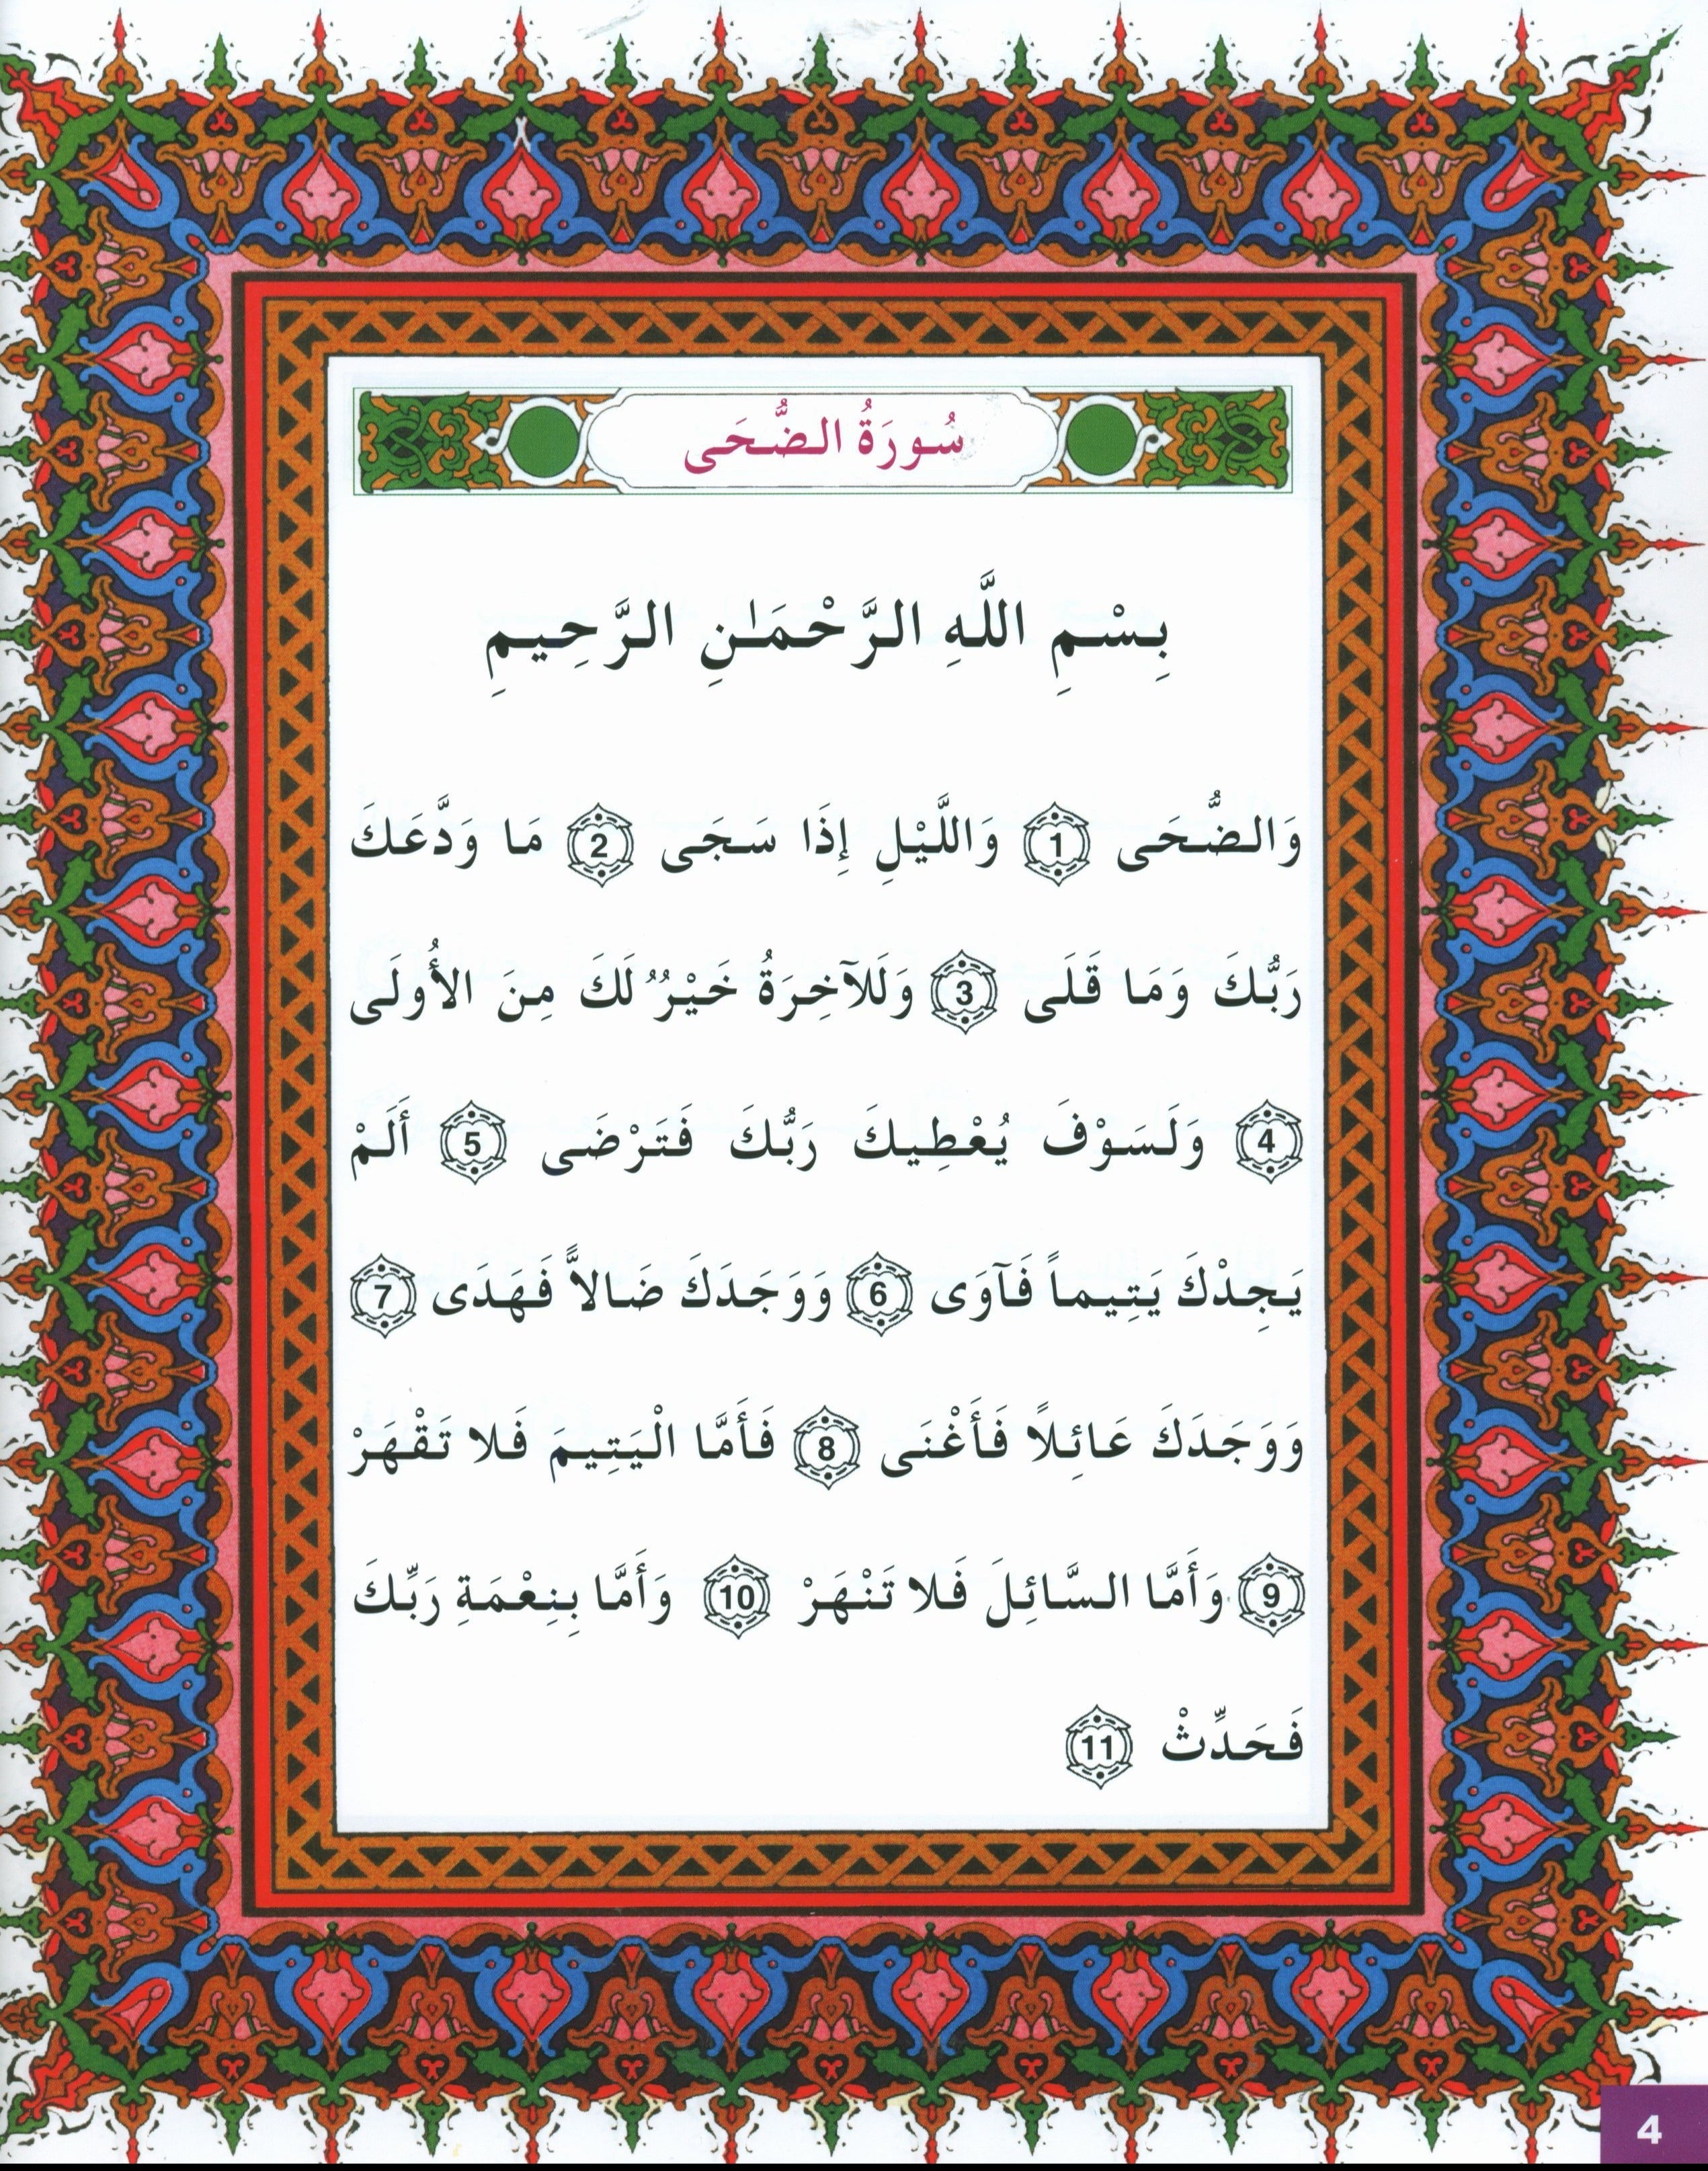 سُورَةُ الضُّحَى
بِسْمِ اللَّهِ الرَّحْمَٰنِ الرَّحِيمِ
وَالضُّحَى 1 وَاللَّيْلِ إِذَا سَجَى 2 مَا وَدَّعَكَ
رَبُّكَ وَمَا قَلَى 3 وَلَلآخِرَةُ خَيْرٌ لَكَ مِنَ الأُولَى
4 وَلَسَوْفَ يُعْطِيكَ رَبُّكَ فَتَرْضَى 5 أَلَمْ
يَجِدْكَ يَتِيماً فَآوَى 6 وَوَجَدَكَ ضَالاًّ فَهَدَى 7
وَوَجَدَكَ عَائِلاً فَأَغْنَى 8 فَأَمَّا الْيَتِيمَ فَلا تَقْهَرْ
9 وَأَمَّا السَّائِلَ فَلا تَنْهَرْ 10 وَأَمَّا بِنِعْمَةِ رَبِّكَ
فَحَدِّثْ 11
4